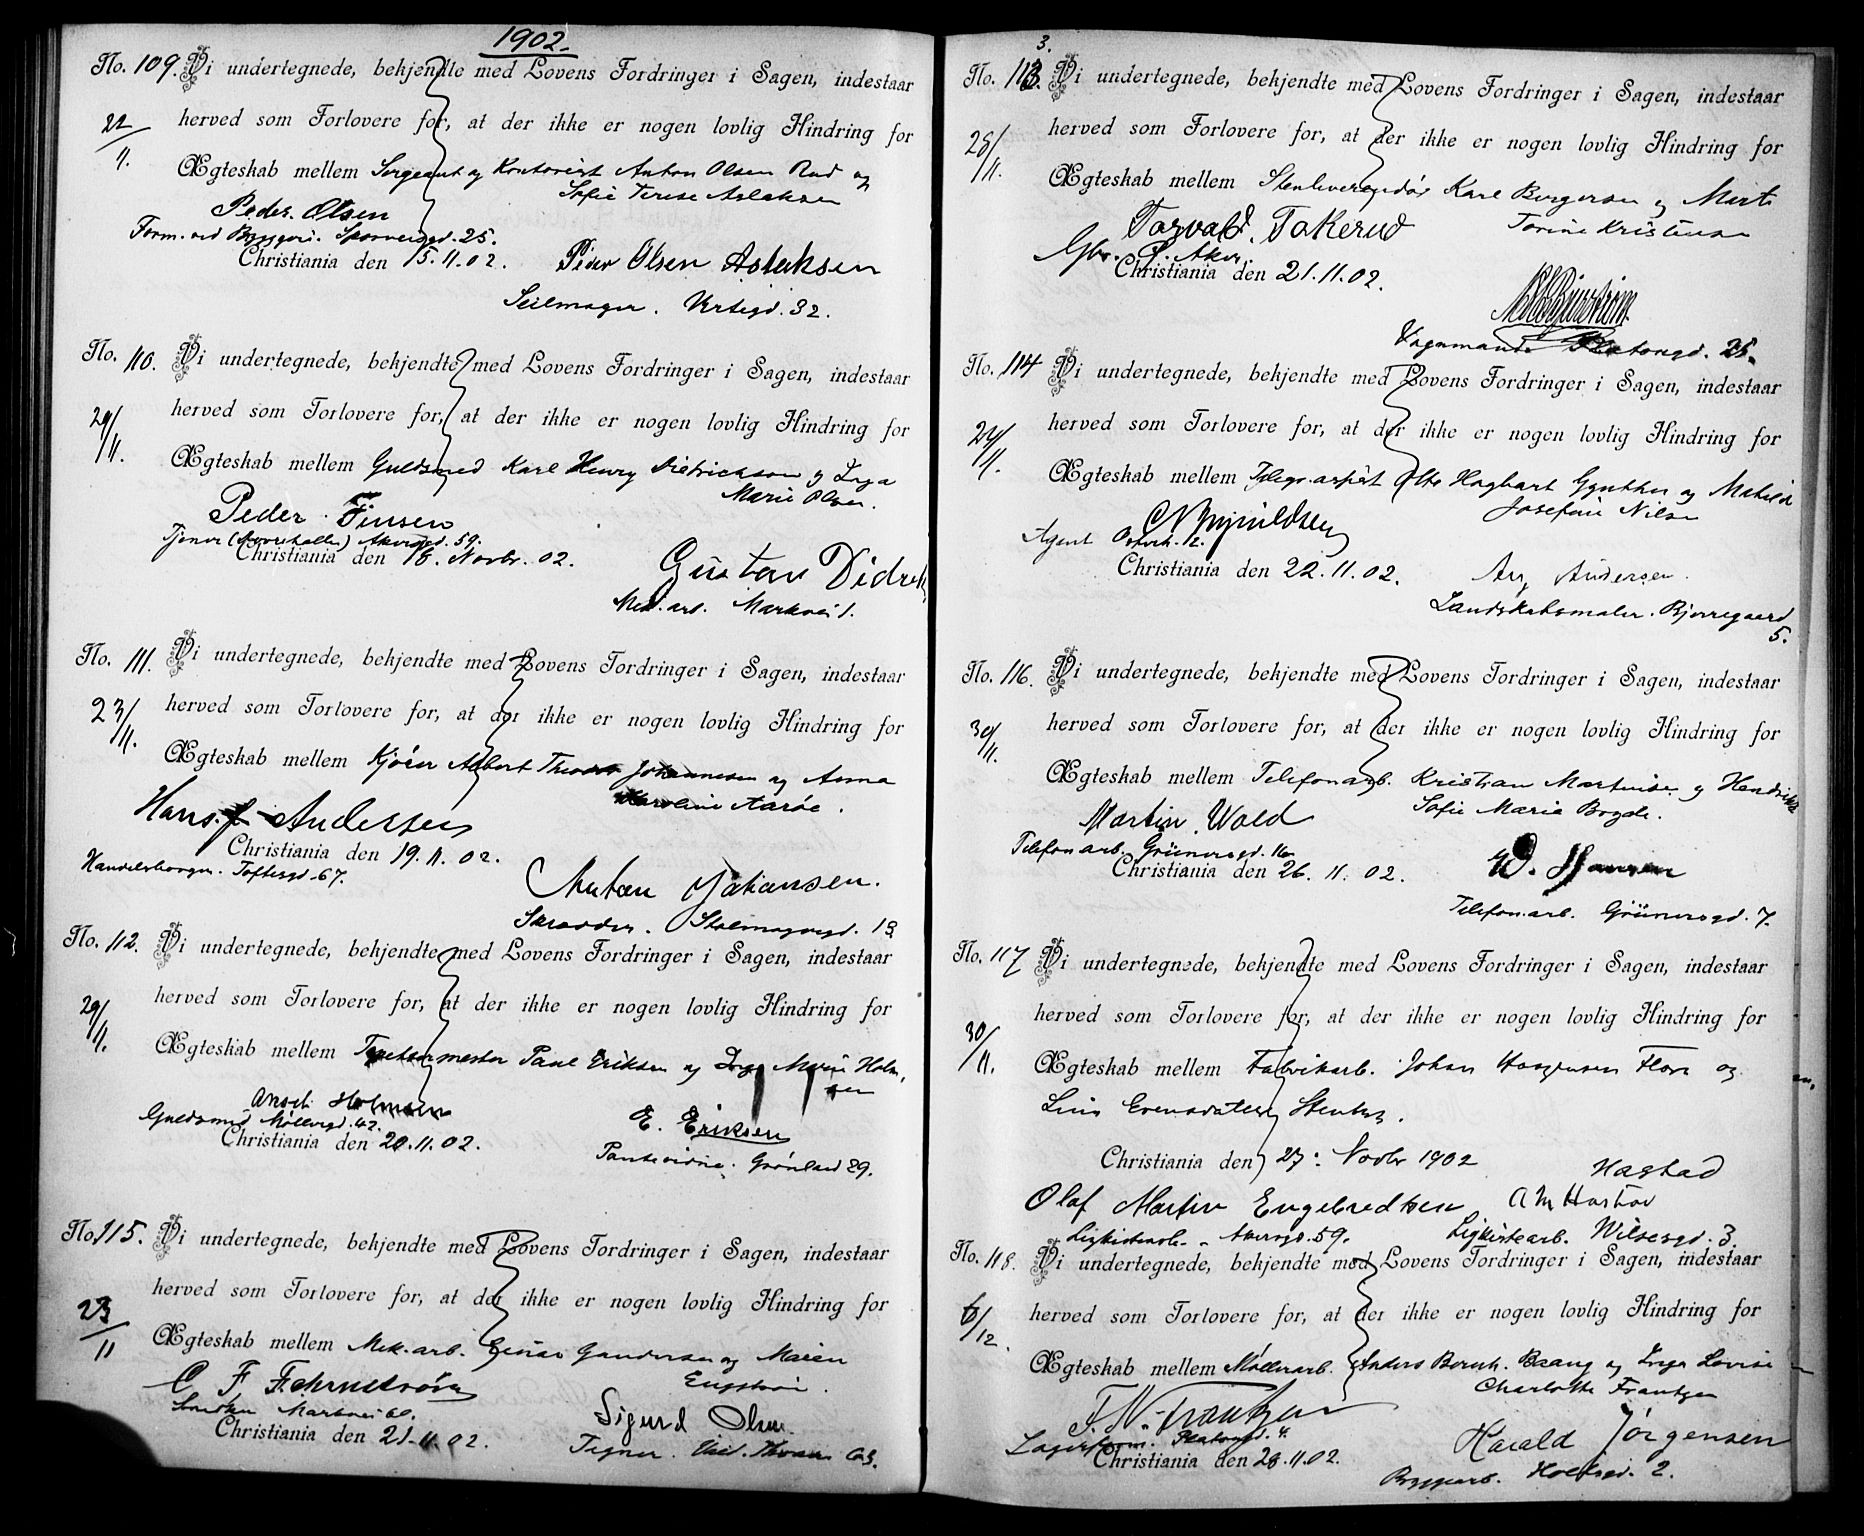 1902.
No. 109. Vi undertegnede, bekjendte med Lovens Fordringer i Sagen, indestaar
22/11. herved som Forlovere for, at der ikke er nogen lovlig Hindring for
Ægteskab mellem Sergeant og Kontorist Anton Olsen Rud og
Sofie Terese Aslaksen
Peder Olsen
Form. ved Bryggeri. Sporveisgd. 25.
Christiania den 15.11.02. Peder Olsen Aslaksen
Seilmager. Vertsgd. 32.
No. 110. Vi undertegnede, bekjendte med Lovens Fordringer i Sagen, indestaar
29/11. herved som Forlovere for, at der ikke er nogen lovlig Hindring for
Ægteskab mellem Guldsmed Karl Henry Dietrichson og Inga
Marie Olsen.
Peder Finsen
Tjener Akersgd. 59.
Christiania den 18. Novbr. 02. Gustav
Mek. arb. Markvei 1.
No. 111. Vi undertegnede, bekjendte med Lovens Fordringer i Sagen, indestaar
23/11. herved som Forlovere for, at der ikke er nogen lovlig Hindring for
Ægteskab mellem Kjører Albert Theodor Johannesen og Anna
Karoline Aarøe.
Hans J. Andersen
Christiania den 19.11.02.
Handelsborger. Toftesgd. 67. Anton Johansen.
Skrædder. Stolmagergd. 13
No. 112. Vi undertegnede, bekjendte med Lovens Fordringer i Sagen, indestaar
29/11. herved som Forlovere for, at der ikke er nogen lovlig Hindring for
Ægteskab mellem Tapetsermester Paul Eriksen og Inga Marie Holm,
sen
Holmsen
Guldsmed Møllergd. 42.
Christiania den 20.11.02. E. Eriksen
Grønland 29.
No. 115. Vi undertegnede, bekjendte med Lovens Fordringer i Sagen, indestaar
23/11 herved som Forlovere for, at der ikke er nogen lovlig Hindring for
Ægteskab mellem Mek. arb. Einar Gundersen og Maren
Engstrøm.
C F Fehrnstrøm
Markvei 60.
Christiania den 21.11.02. Sigurd Olsen
Tegner.
3.
No. 113. Vi undertegnede, bekjendte med Lovens Fordringer i Sagen, indestaar
28/11. herved som Forlovere for, at der ikke er nogen lovlig Hindring for
Ægteskab mellem Stenleverandør Karl Borgersen og Marte
Torine Kristensen
Torvald Tokerud
Gbr. Aker.
Christiania den 21.11.02.
Platousgd. 25.
No. 114 Vi undertegnede, bekjendte med Lovens Fordringer i Sagen, indestaar
24/11. herved som Forlovere for, at der ikke er nogen lovlig Hindring for
Ægteskab mellem Telegr. aspirt Otto Hagbart Gynther og Matilde
Josefine Nilsen
Agent
Christiania den 22.11.02. Andersen.
Landskabsmaler. Bjerregaard
5.
No. 116. Vi undertegnede, bekjendte med Lovens Fordringer i Sagen, indestaar
30/11. herved som Forlovere for, at der ikke er nogen lovlig Hindring for
Ægteskab mellem Telefonarb. Kristian Martinsen og Hendrikke
Sofie Marie Bogde.
Martin Wold
Telefonarb. Grünersgd. 16
Christiania den 26.11.02. Hansen
Telefonarb. Grünersgd. 7.
No. 117 Vi undertegnede, bekjendte med Lovens Fordringer i Sagen, indestaar
30/11. herved som Forlovere for, at der ikke er nogen lovlig Hindring for
Ægteskab mellem Fabrikarb. Johan Flore og
Evensdatter
Christiania den 27. Novbr 1902 Hastad
Olaf Martin Engebredtsen A M Hastad
Ligkistearb. Akersgd. 59. Ligkistearb. Wilsesgd. 3.
No. 118. Vi undertegnede, bekjendte med Lovens Fordringer i Sagen, indestaar
6/12. herved som Forlovere for, at der ikke er nogen lovlig Hindring for
Ægteskab mellem Møllerarb. Anders Bernh. Baang og Inga Lovise
Charlotte Frantzen
F. N. Frantzen
Lagerform. Platousgd. 4.
Christiania den 28.11.02. Harald Jørgensen
Bryggearb. Holtsgd. 2.